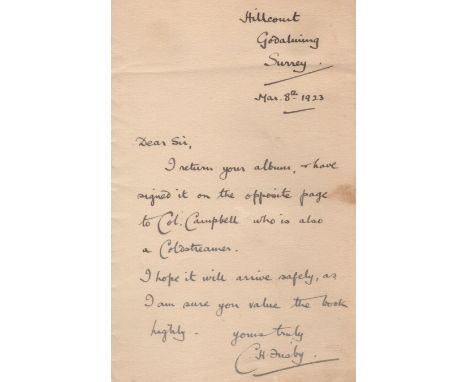 Hillcourt
Godalming
Surrey.
Mar. 8th 1923
Dear Sir,
I return your album, & have
signed it on the opposite page
to Col. Campbell who is also
a Coldstreamer.
I hope it will arrive safely, as
I am sure you value the book
highly. yours truly
C H Frisby.